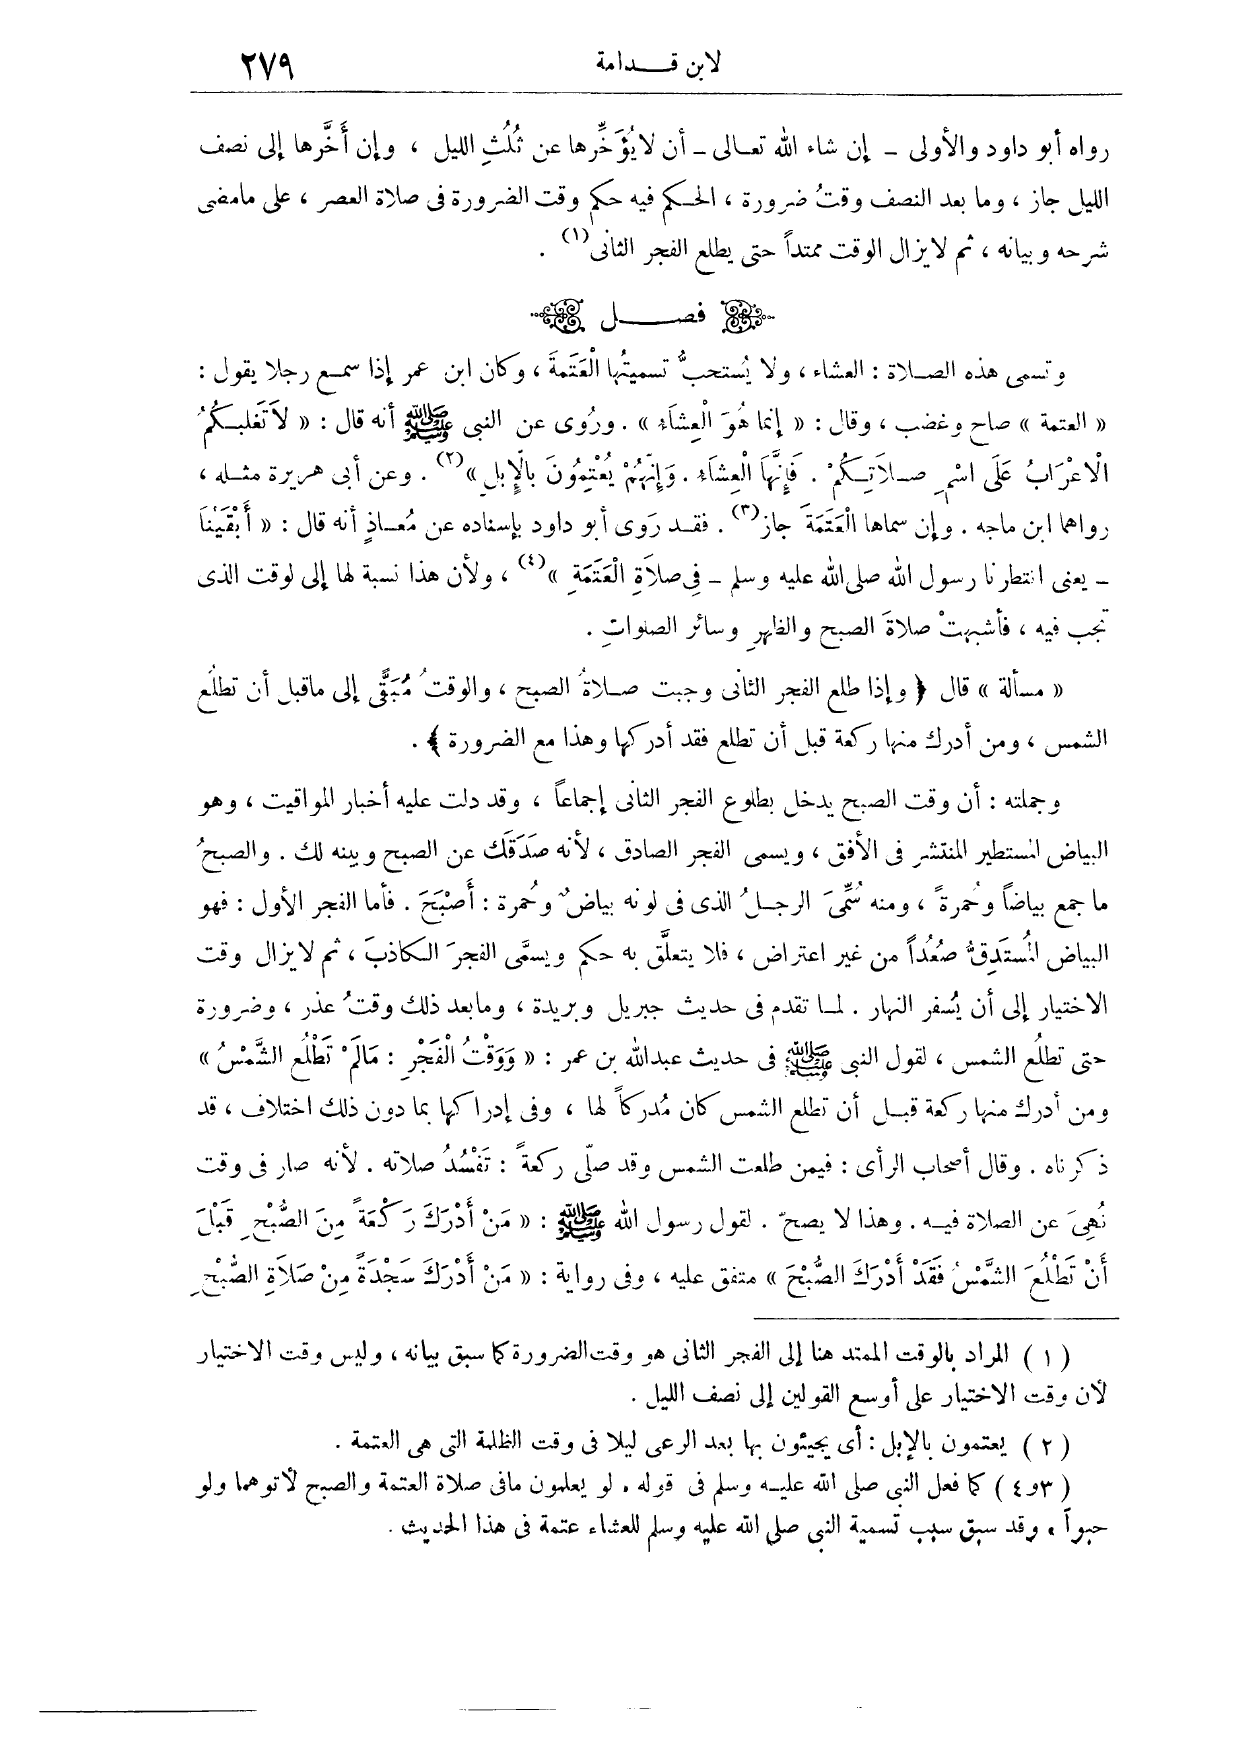 لابن قدامة ٢٧٩
رواه أبو داود والأولى - إن شاء الله تعالى - أن لا يُؤَخِّرها عن ثُلُثِ الليل ، وإن أَخَّرها إلى نصف
الليل جاز ، وما بعد النصف وقتُ ضرورة ، الحكم فيه حكم وقت الضرورة فى صلاة العصر ، على مامضى
شرحه وبيانه ، ثم لايزال الوقت ممتداً حتى يطلع الفجر الثانى (١) .
فصل
وتسمى هذه الصلاة : العشاء ، ولا يُستحبُّ تسميتُها الْعَتَمةَ ، وكان ابن عمر إذا سمع رجلا يقول :
« العتمة » صاح وغضب ، وقال : « إنما هُوَ الْعِشَاءِ » . ورُوى عن النبى ﷺ أنه قال : « لاَتَغلبكُمُ
الْاعْرَابُ عَلَى اسْمِ صلاَتِكُمْ . فَإِنَّهَا الْعِشَاءِ . وَإِنَّهُمْ يُعْتِمُونَ بالْإِبلِ » (٢) . وعن أبى هريرة مثله ،
رواهما ابن ماجه . وإن سماها الْعَتَمَةَ جاز (٣) . فقد رَوى أبو داود بإسناده عن مُعاذٍ أنه قال : « أَبْقَيْنَا
- يعنى انتظرنا رسول الله صلى الله عليه وسلم - فِى صلاَةِ الْعَتَمَةِ » (٤) ، ولأن هذا نسبة لها إلى لوقت الذى
تجب فيه ، فأشبهتْ صلاةَ الصبح والظهرِ وسائر الصلواتِ .
« مسألة » قال ﴿ وإذا طلع الفجر الثانى وجبت صلاةُ الصبح ، والوقتُ مُبَقًّى إلى ماقبل أن تطلُع
الشمس ، ومن أدرك منها ركعة قبل أن تطلع فقد أدركها وهذا مع الضرورة ﴾ .
وجملته : أن وقت الصبح يدخل بطلوع الفجر الثانى إجماعاً ، وقد دلت عليه أخبار المواقيت ، وهو
البياض المستطير المنتشر فى الأفق ، ويسمى الفجر الصادق ، لأنه صَدَقَك عن الصبح وبينه لك . والصبحُ
ما جمع بياضاً وحُمرةً ، ومنه سُمِّىَ الرجلُ الذى فى لونه بياضٌ وحُمرة : أَصْبَحَ . فأما الفجر الأول : فهو
البياض المُستَدِقُّ صُعُداً من غير اعتراض ، فلا يتعلَّق به حكم ويسمَّى الفجرَ الكاذبَ ، ثم لايزال وقت
الاختيار إلى أن يُسفر النهار . لما تقدم فى حديث جبريل وبريدة ، ومابعد ذلك وقتُ عذر ، وضرورة
حتى تطلُع الشمس ، لقول النبى ﷺ فى حديث عبدالله بن عمر : « وَوَقْتُ الْفَجْرِ : مَالَمْ تَطْلُع الشَّمْسُ »
ومن أدرك منها ركعة قبل أن تطلع الشمس كان مُدركاً لها ، وفى إدراكها بما دون ذلك اختلاف ، قد
ذكرناه . وقال أصحاب الرأى : فيمن طلعت الشمس وقد صلّى ركعةً : تَفْسُدُ صلاته . لأنه صار فى وقت
نُهِىَ عن الصلاة فيه . وهذا لا يصحّ . لقول رسول الله ﷺ : « مَنْ أَدْرَكَ رَكْعَةً مِنَ الصُّبْحِ قَبْلَ
أَنْ تَطْلُعَ الشَّمْسُ فَقَدْ أَدْرَكَ الصُّبْحَ » متفق عليه ، وفى رواية : « مَنْ أَدْرَكَ سَجْدَةً مِنْ صَلاَةِ الصُّبْحِ
( ١ ) المراد بالوقت الممتد هنا إلى الفجر الثانى هو وقت الضرورة كما سبق بيانه ، وليس وقت الاختيار
لأن وقت الاختيار على أوسع القولين إلى نصف الليل .
( ٢ ) يعتمون بالإبل : أى يجيئون بها بعد الرعى ليلا فى وقت الظلمة التى هى العتمة .
( ٣و٤ ) كما فعل النبى صلى الله عليه وسلم فى قوله ، لو يعلمون مافى صلاة العتمة والصبح لأتوهما ولو
حبواً ، وقد سبق سبب تسمية النبى صلى الله عليه وسلم للعشاء عتمة فى هذا الحديث .